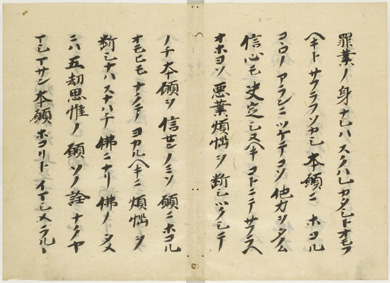 罪業ノ身ナレハスクハレカタシトオモフ
ヘキトサフラフソカシ本願ニホコル
コヽロノアランニツケテコソ他力ヲタノム
信心モ決定シヌヘキコトニテサフラヘ
オホヨソ悪業煩悩ヲ断シツクシテ
ノチ本願ヲ信センノミソ願ニホコル
オモヒモナクテヨカルヘキニ煩悩ヲ
断シナハスナハチ佛ニナリ佛ノタメ
ニハ五劫思惟ノ願ソノ詮ナクヤ
マシマサン本願ホコリトイマシメラルヽ